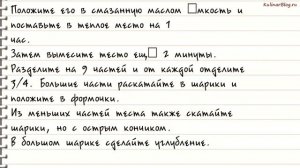 KulinarBlog.ru
Положите его в смазанную маслом □мкость и
поставьте в теплое место на 1
час.
Затем вымесите тесто ещ□ 2 минуты.
Разделите на 9 частей и от каждой отделите
3/4. Большие части раскатайте в шарики и
положите в формочки.
Из меньших частей теста также скатайте
шарики, но с острым кончиком.
В большом шарике сделайте углубление.